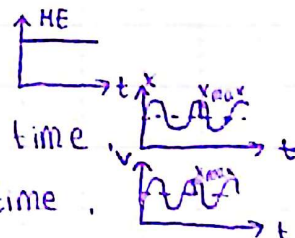 HE
t
x
xmax
time.
t
v
xmax
time.
t